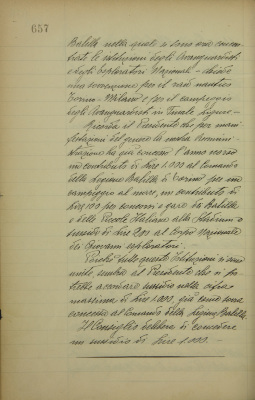 657
Balilla nella quale si sono ora concen-
trate le istituzioni degli Avanguardisti
e degli Esploratori Nazionali - chiede
una sovvenzione per il raid nautico
Torino - Milano e per il campeggio
degli Avanguardisti in Finale Ligure -
Ricorda il Presidente che per mani-
festazioni del genere la nostra Ammini-
strazione ha già concesso l'anno scorso
un contributo di Lire 1.000 al Comando
della Legione Balilla di Torino per un
campeggio al mare, un contributo di
Lire 100 per concorsi e gare fra Balilla
e delle Piccole Italiane
sussidio di Lire al Corpo Nazionale
dei Giovani esploratori.
Perchè tutte queste Istituzioni si sono
unite, sembra al Presidente che si po-
trebbe accordare sussidio nella cifra
massima di Lire 1.000, già l'anno scorso
concesso al Comando della Legione Balilla.
Il Consiglio delibera di concedere
un sussidio di Lire 1.000 -